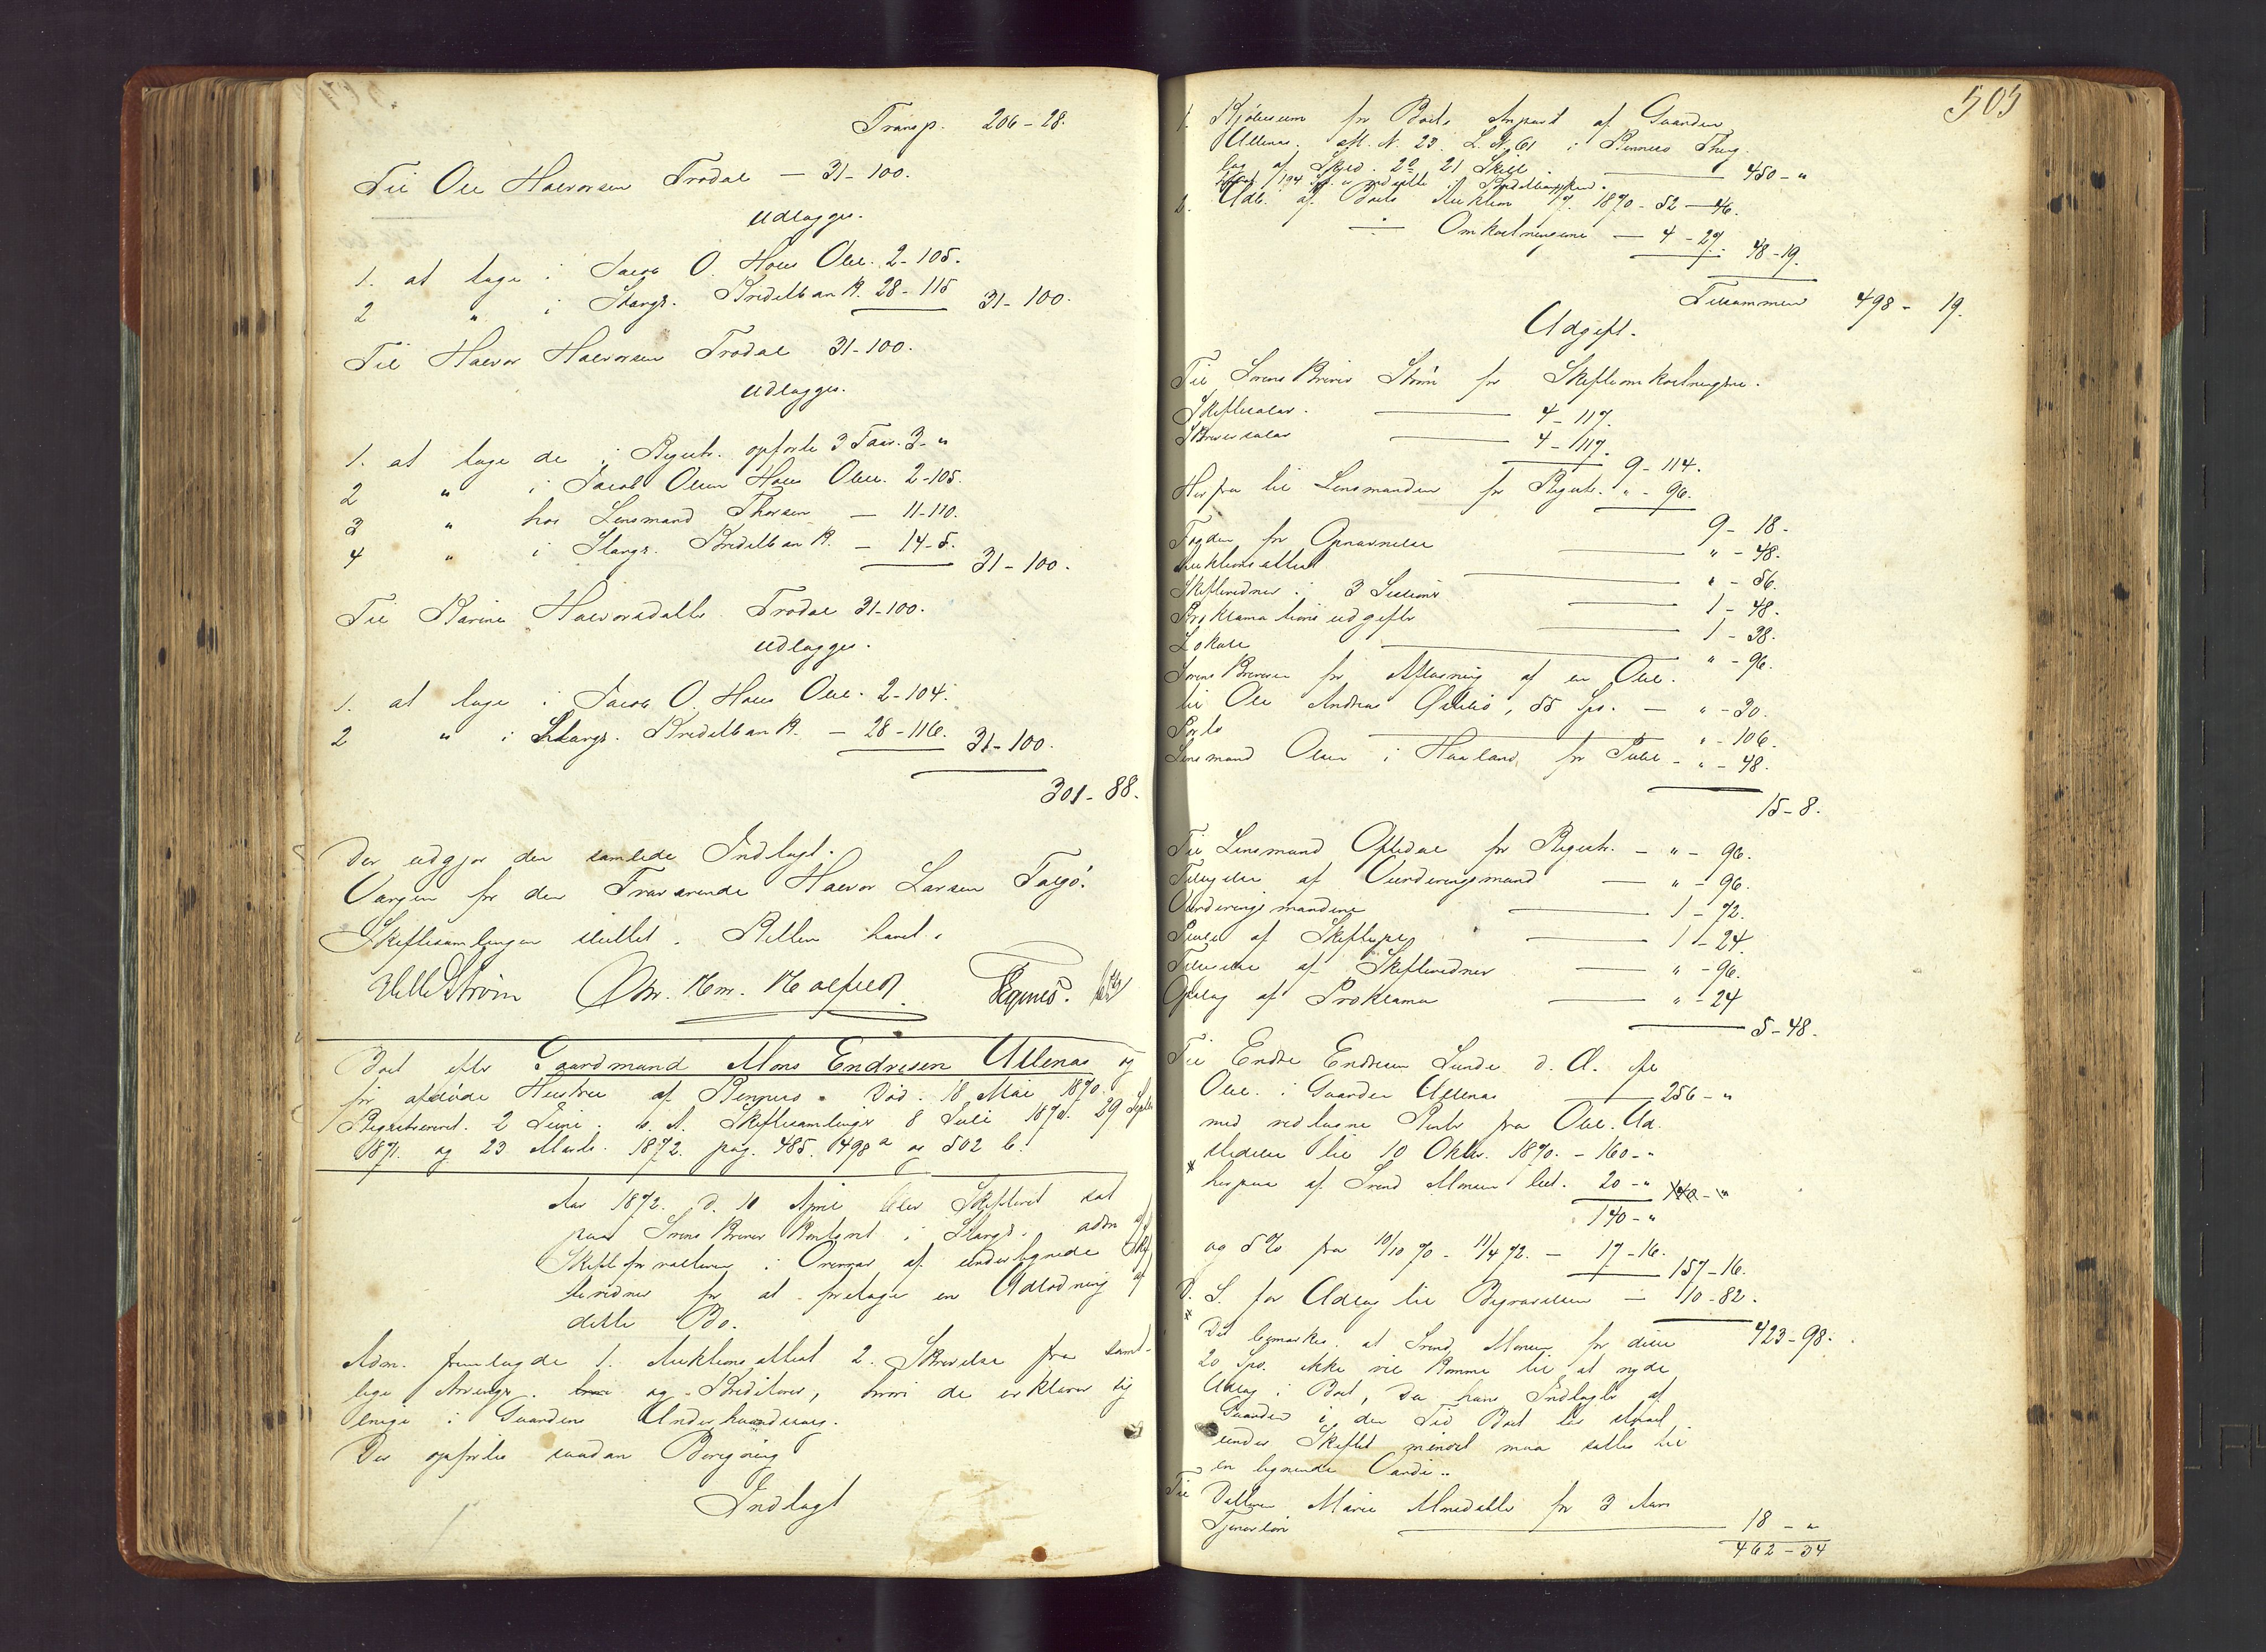 Transp. 206-28.
Til Ole Halvorsen Trodal — 31-100.
Udlægges.
1. at tage i Jacob O. Hoies Obl. 2-105.
2 " i Stavgr. Kreditbank. 28-115 31-100.
Til Halvor Halvorsen Trodal 31-100.
Udlægges.
1. at tage de i Registr. opførte 3 Faar. 3-"
2 " i Jacob Olsen Hoies Obl. 2-105.
3 " hos Lensmand Thorsen — 11-110.
4 " i Stavgr. Kreditbank. — 14-5. 31-100.
Til Karine Halvorsdatter Trodal 31-100.
Udlægges.
1. at tage i Jacob O. Hoies Obl. 2-104.
2 " i Stavgr. Kreditbank. — 28-116. 31-100.
301-88.
Der udgjør den samlede Indtægt.
Værgen for den Fraværende Halvor Larsen Talgø.
Skiftesamlingen sluttet. Retten hævet.
Boet efter Gaardmand Mons Endresen Ullenæs og
før afdøde Hustru af Rennesø. Død 18 Mai 1870.
Registreret 2 Juni s. A. Skiftesamlinger 8 Juli 1870. 29 Septbr
1871. og 23 Marts. 1872. pag. 485. 498a og 502 b.
Aar 1872. D. 10 April blev Skifteret sat
paa Sorenskriver Kontoret i Stavgr. adm af
Skifteforvalteren i Overvær af undertegnede Skif
tevidner for at foretage en Udlodning af
dette Bo.
Adm. fremlagde 1. Auktionsattest 2. Skrivelse fra samt-
lige Arvinger og Kreditorer, hvori de erklærer sig
enige i Gaardens Underhaandssalg.
Der opførtes saadan Beregning
Indtægt
505
1. Kjøbesum for Boets Anpart af Gaarden
Ullenæs. M. N. 23. L. N. 61 i Rennesø Thing-
lag af Skyld. 2 21 Skill — 450-"
2. Udb. af Boets Auktion 1870 - 52-46.
÷ Omkostningerne — 4-27. 48-19.
Tilsammen 498-19.
Udgift.
Til Sorenskriver Strøm for Skifteomkostningerne.
Skiftesalær. — 4-117.
Skriversalær — 4-117.
9-114.
Herfra til Lensmanden for Registr. "-96.
9-18.
Fogden for Opnævnelse — "-48.
Auktionsattest — "-56.
Skiftevidner i 3 Sessions — 1-48.
Proklamations udgifter — 1-38.
Lokale — "-96.
Sorenskriveren for Aflæsning af en Obl.
til Ole Andreas , 55 Spd. — "-30.
Porto — "-106.
Lensmand Olsen i Haaland, for — "-48.
15-8.
Til Lensmand Oftedal for Registr. — "-96.
Tilsigelse af Vurderingsmænd — "-96.
Vurderingsmændene — 1-72.
af Skiftepr — 1-24
Tilsigelse af Skiftevidner — "-96.
Opslag af Proklama — "-24
5-48.
Til Endre Endresen Lunde d. Æ. efter
Obl. i Gaarden Ullenæs — 256-"
med vedtagne Renter fra Obl. Ud-
stedelse til 10 Oktbr. 1870. - 160-"
* herpaa af Svend Monsen bet. 20-" 140-"
140-"
og 5% fra 10/10 70 - 11/4 72. — 17-16.
157-16.
D. S. for Udlæg til Begravelsen — 10-82.
423-98.
* Det bemærkes, at Svend Monsen for disse
20 Spd. ikke vil komme til at nyde
Udlæg i Boet, da hans Indtægter af
Gaarden i den Tid Boet har staaet
under Skiftet mindst maa sættes til
en lignende Værdi.
Til Datteren Marie Monsdatter for 3 Aars
Tjenerløn — 18-"
462-34